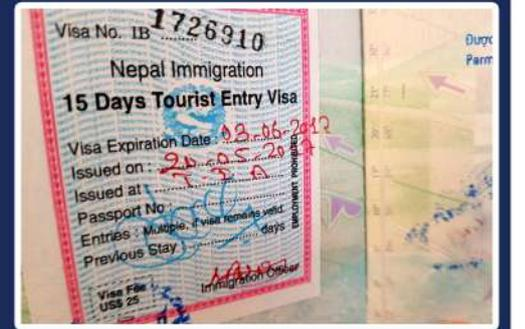 Visa No. 1B 1726910
Nepal Immigration
15 Days Tourist Entry Visa
Visa Expiration Date : 03-06-2017
Issued on : 20.05.2017
Issued at : T I A
Passport No :
Entries : Multiple, if visa remains valid
Previous Stay days
EMPLOYMENT PROHIBITED
Visa Fee
US$ 25
Immigration Officer
Được